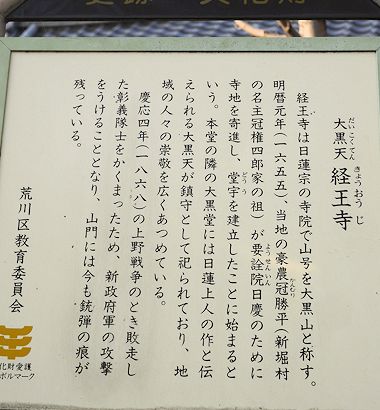 大黒天 経王寺
だいこくてん きょうおうじ
経王寺は日蓮宗の寺院で山号を大黒山と称す。
明暦元年(一六五五)、当地の豪農冠勝平(新堀村
の名主冠権四郎家の祖)が要詮院日慶のために
ようせんいん
寺地を寄進し、堂宇を建立したことに始まると
どうう
いう。本堂の隣の大黒堂には日蓮上人の作と伝
えられる大黒天が鎮守として祀られており、地
域の人々の崇敬を広くあつめている。
慶応四年(一八六八)の上野戦争のとき敗走し
た彰義隊士をかくまったため、新政府軍の攻撃
をうけることとなり、山門には今も銃弾の痕が
残っている。
荒川区教育委員会
化財愛護
ボルマーク